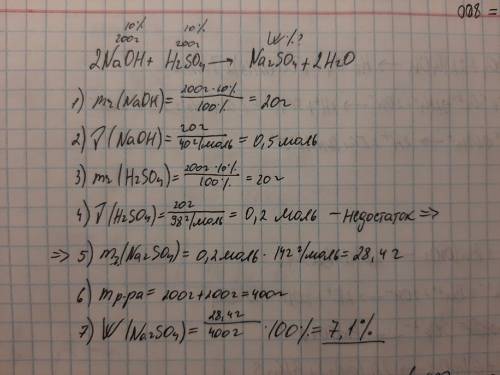 = 008
10% 10%
200г 200г W%?
2NaOH + H2SO4 → Na2SO4 + 2H2O
1) m2(NaOH) = 200г · 10% / 100% = 20г
2) ν(NaOH) = 20г / 40г/моль = 0,5 моль
3) m2(H2SO4) = 200г · 10% / 100% = 20г
4) ν(H2SO4) = 20г / 98г/моль = 0,2 моль - недостаток =>
=> 5) m2(Na2SO4) = 0,2 моль · 142г/моль = 28,4г
6) m р-ра = 200г + 200г = 400г
7) W(Na2SO4) = 28,4г / 400г · 100% = 7,1%